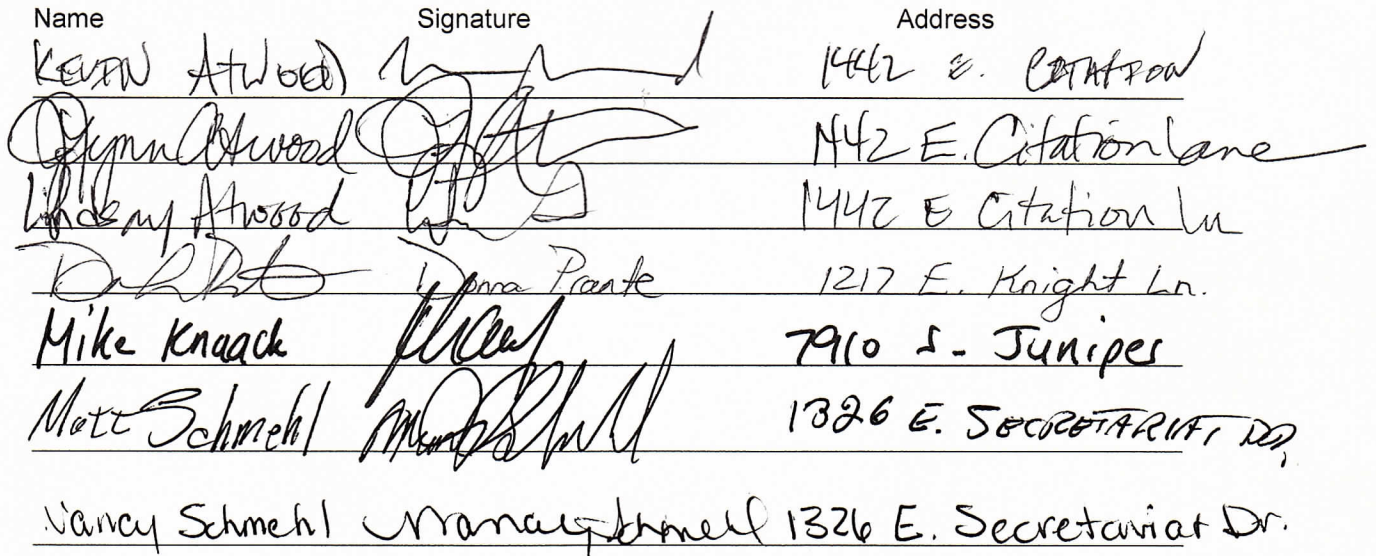 Name Signature Address
KEVIN Atwood 1442 E. CITATION
Atwood 1442 E. Citation Lane
Lindsay Atwood 1442 E Citation Ln
Donna Prante 1217 E. Knight Ln.
Mike Knaack 7910 S. Juniper
Matt Schmehl 1326 E. SECRETARIAT DR.
Nancy Schmehl Nancy Schmehl 1326 E. Secretariat Dr.